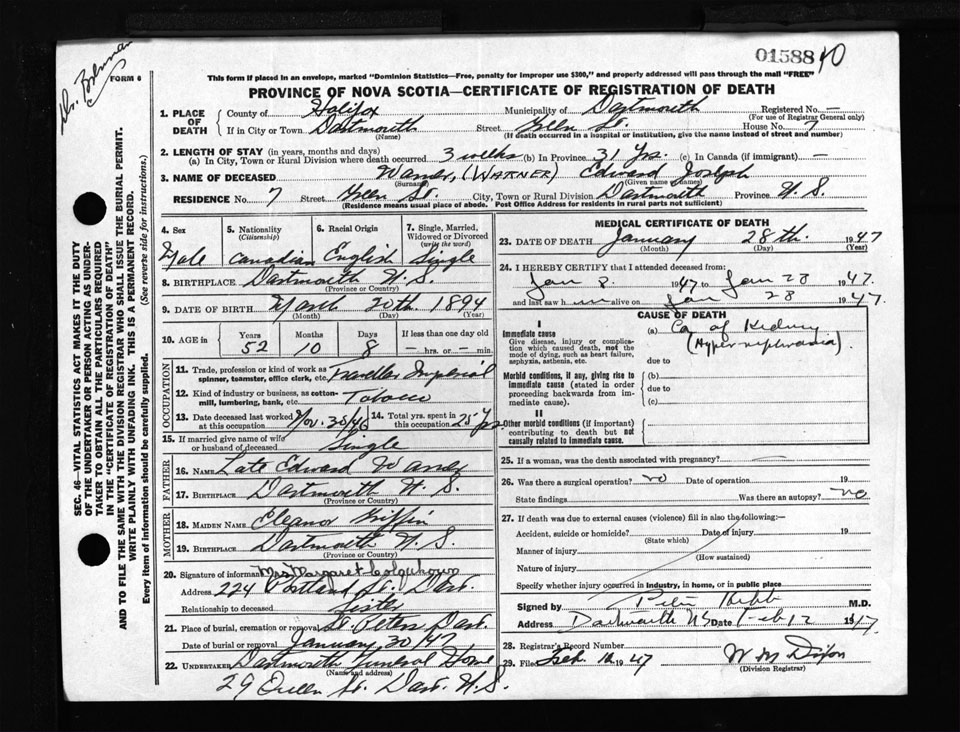 01588 40
Dr.
FORM 6
This form if placed in an envelope, marked "Dominion Statistics—Free, penalty for improper use $300," and properly addressed will pass through the mail "FREE"
PROVINCE OF NOVA SCOTIA—CERTIFICATE OF REGISTRATION OF DEATH
1. PLACE OF DEATH
County of Halifax Municipality of Dartmouth Registered No. —
(For use of Registrar General only)
If in City or Town Dartmouth Street St. House No. 7
(Name) (If death occurred in a hospital or institution, give the name instead of street and number)
2. LENGTH OF STAY (in years, months and days)
(a) In City, Town or Rural Division where death occurred 3 weeks (b) In Province 31 Yrs. (c) In Canada (if immigrant) —
3. NAME OF DECEASED (WARNER) Edward Joseph
(Surname) (Given name or names)
RESIDENCE No. 7 Street St. City, Town or Rural Division Dartmouth Province N. S.
(Residence means usual place of abode. Post Office Address for residents in rural parts not sufficient)
SEC. 46—VITAL STATISTICS ACT MAKES IT THE DUTY
OF THE UNDERTAKER OR PERSON ACTING AS UNDER-
TAKER TO OBTAIN ALL THE PARTICULARS REQUIRED
IN THE "CERTIFICATE OF REGISTRATION OF DEATH"
AND TO FILE THE SAME WITH THE DIVISION REGISTRAR WHO SHALL ISSUE THE BURIAL PERMIT.
WRITE PLAINLY WITH UNFADING INK. THIS IS A PERMANENT RECORD.
Every item of information should be carefully supplied. (See reverse side for instructions.)
4. Sex
Male
5. Nationality
(Citizenship)
Canadian
6. Racial Origin
English
7. Single, Married,
Widowed or Divorced
(write the word)
Single
8. BIRTHPLACE Dartmouth N. S.
(Province or Country)
9. DATE OF BIRTH March 20th. 1894
(Month) (Day) (Year)
10. AGE in
Years Months Days If less than one day old
52 10 8 — hrs. or — min.
OCCUPATION
11. Trade, profession or kind of work as
spinner, teamster, office clerk, etc. Traveller Imperial
12. Kind of industry or business, as cotton-
mill, lumbering, bank, etc. Tobacco
13. Date deceased last worked
at this occupation Nov. 30/46
14. Total yrs. spent in
this occupation 25 Yrs
15. If married give name of wife
or husband of deceased Single
FATHER
16. NAME Late Edward
17. BIRTHPLACE Dartmouth N. S.
(Province or Country)
MOTHER
18. MAIDEN NAME Eleanor Griffin
19. BIRTHPLACE Dartmouth N. S.
(Province or Country)
20. Signature of informant Mrs. Margaret Colquhoun
Address 224 Portland St. Dart.
Relationship to deceased Sister
21. Place of burial, cremation or removal St. Peters Dart.
Date of burial or removal January 30/47
22. UNDERTAKER Dartmouth Funeral Home
(Name and address)
29 Queen St. Dart. N. S.
MEDICAL CERTIFICATE OF DEATH
23. DATE OF DEATH January 28th. 1947
(Month) (Day) (Year)
24. I HEREBY CERTIFY that I attended deceased from:
Jan 8. 1947 to Jan 28 1947.
and last saw him alive on Jan 28 1947.
CAUSE OF DEATH
I
Immediate cause
Give disease, injury or complica-
tion which caused death, not the
mode of dying, such as heart failure,
asphyxia, asthenia, etc.
(a) Ca. of Kidney
(Hypernephroma).
due to
Morbid conditions, if any, giving rise to
immediate cause (stated in order
proceeding backwards from im-
mediate cause).
(b)
due to
(c)
II
Other morbid conditions (if important)
contributing to death but not
causally related to immediate cause.
25. If a woman, was the death associated with pregnancy? —
26. Was there a surgical operation? no Date of operation 19
State findings Was there an autopsy? no
27. If death was due to external causes (violence) fill in also the following:—
Accident, suicide or homicide? Date of injury 19
(State which)
Manner of injury
(How sustained)
Nature of injury
Specify whether injury occurred in industry, in home, or in public place
Signed by M.D.
Address Dartmouth NS Date Feb 12 1947
28. Registrar's Record Number
29. Filed Feb. 1947 W M Dixon
(Division Registrar)